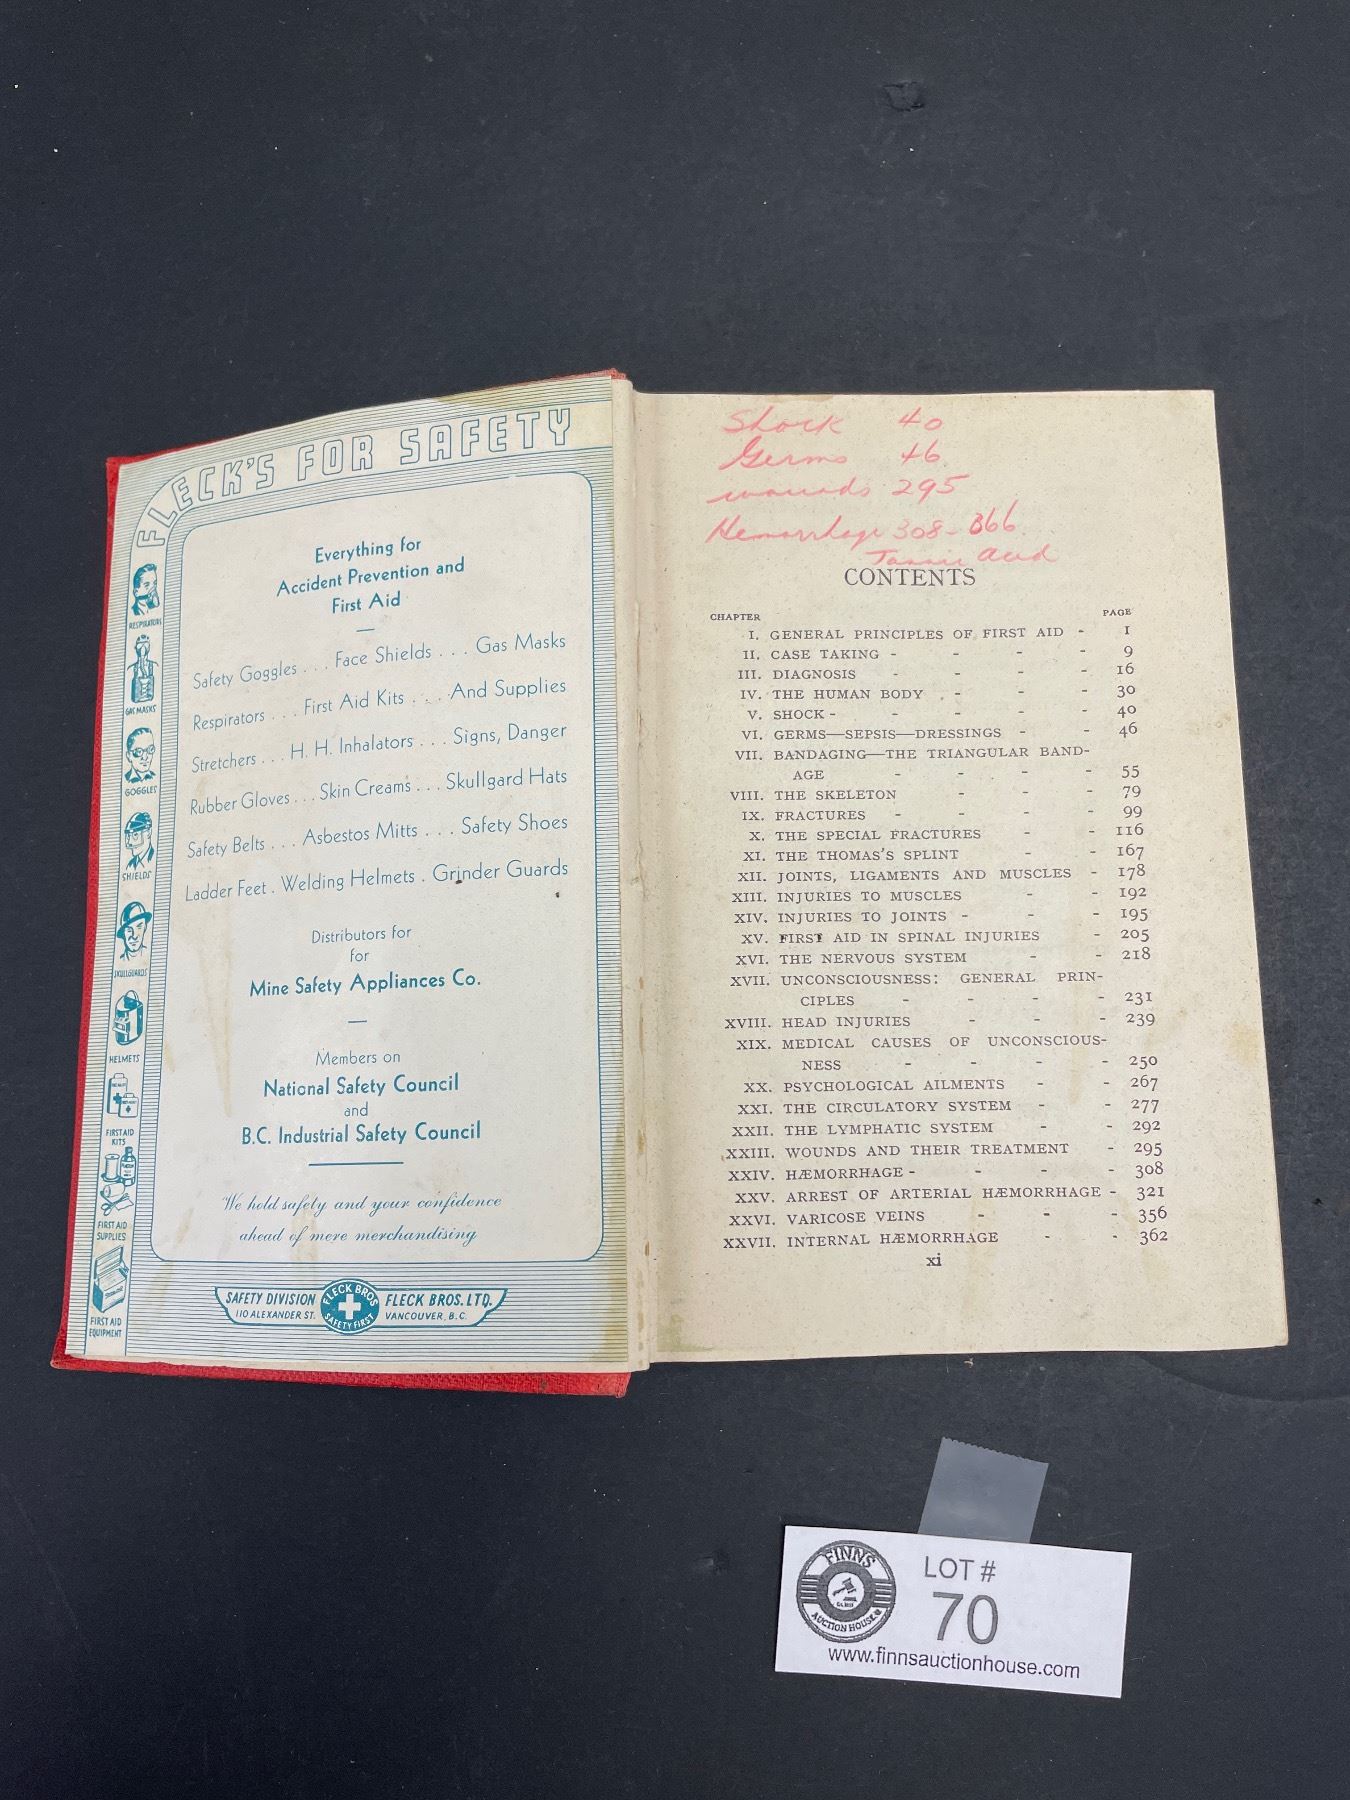 FLECK'S FOR SAFETY
Everything for
Accident Prevention and
First Aid
Safety Goggles . . . Face Shields . . . Gas Masks
Respirators . . . First Aid Kits . . . . And Supplies
Stretchers . . . H. H. Inhalators . . . Signs, Danger
Rubber Gloves . . . Skin Creams . . . Skullgard Hats
Safety Belts . . . Asbestos Mitts . . . Safety Shoes
Ladder Feet . Welding Helmets . Grinder Guards
Distributors for
for
Mine Safety Appliances Co.
Members on
National Safety Council
and
B.C. Industrial Safety Council
We hold safety and your confidence
ahead of mere merchandising
RESPIRATORS
GAS MASKS
GOGGLES
SHIELDS
SKULLGUARDS
HELMETS
FIRST AID
KITS
FIRST AID
SUPPLIES
FIRST AID
EQUIPMENT
SAFETY DIVISION
110 ALEXANDER ST.
FLECK BROS
SAFETY FIRST
FLECK BROS. LTD.
VANCOUVER, B.C.
Shock 40
Germs 46
wounds 295
Hemorrhage 308-366
Tannic Acid
CONTENTS
CHAPTER PAGE
I. GENERAL PRINCIPLES OF FIRST AID - 1
II. CASE TAKING - - - - 9
III. DIAGNOSIS - - - - 16
IV. THE HUMAN BODY - - - 30
V. SHOCK - - - - - 40
VI. GERMS—SEPSIS—DRESSINGS - - 46
VII. BANDAGING—THE TRIANGULAR BAND-
AGE - - - - 55
VIII. THE SKELETON - - - 79
IX. FRACTURES - - - - 99
X. THE SPECIAL FRACTURES - - 116
XI. THE THOMAS'S SPLINT - - 167
XII. JOINTS, LIGAMENTS AND MUSCLES - 178
XIII. INJURIES TO MUSCLES - - 192
XIV. INJURIES TO JOINTS - - - 195
XV. FIRST AID IN SPINAL INJURIES - 205
XVI. THE NERVOUS SYSTEM - - 218
XVII. UNCONSCIOUSNESS: GENERAL PRIN-
CIPLES - - - - 231
XVIII. HEAD INJURIES - - - 239
XIX. MEDICAL CAUSES OF UNCONSCIOUS-
NESS - - - - 250
XX. PSYCHOLOGICAL AILMENTS - - 267
XXI. THE CIRCULATORY SYSTEM - - 277
XXII. THE LYMPHATIC SYSTEM - - 292
XXIII. WOUNDS AND THEIR TREATMENT - 295
XXIV. HÆMORRHAGE - - - - 308
XXV. ARREST OF ARTERIAL HÆMORRHAGE - 321
XXVI. VARICOSE VEINS - - - 356
XXVII. INTERNAL HÆMORRHAGE - - 362
xi
FINNS
AUCTION HOUSE
LOT #
70
www.finnsauctionhouse.com